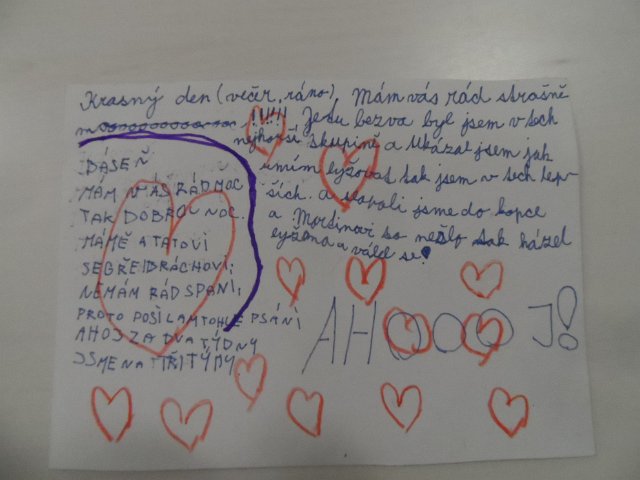 Krasný den (večír, ráno), Mám vás rád strašně
!!!!! Je tu bezva byl jsem v těch
nejhorší skupině a Ukázal jsem jak
umím lyžovat tak jsem v těch lep-
ších. a šlapali jsme do kopce
a se nešlo tak házel
lyžema a válel se!
BÁSEŇ
MÁM VÁS RÁD MOC
TAK DOBROU NOC.
MÁMĚ A TATOVI
SEGŘE I BRÁCHOVI;
NEMÁM RÁD SPANÍ;
PROTO POSÍLAM TOHLE PSÁNÍ
AHOJ ZA DVA TÝDNY
JSME NA TŘI TÝDNY
AHOOOOJ!